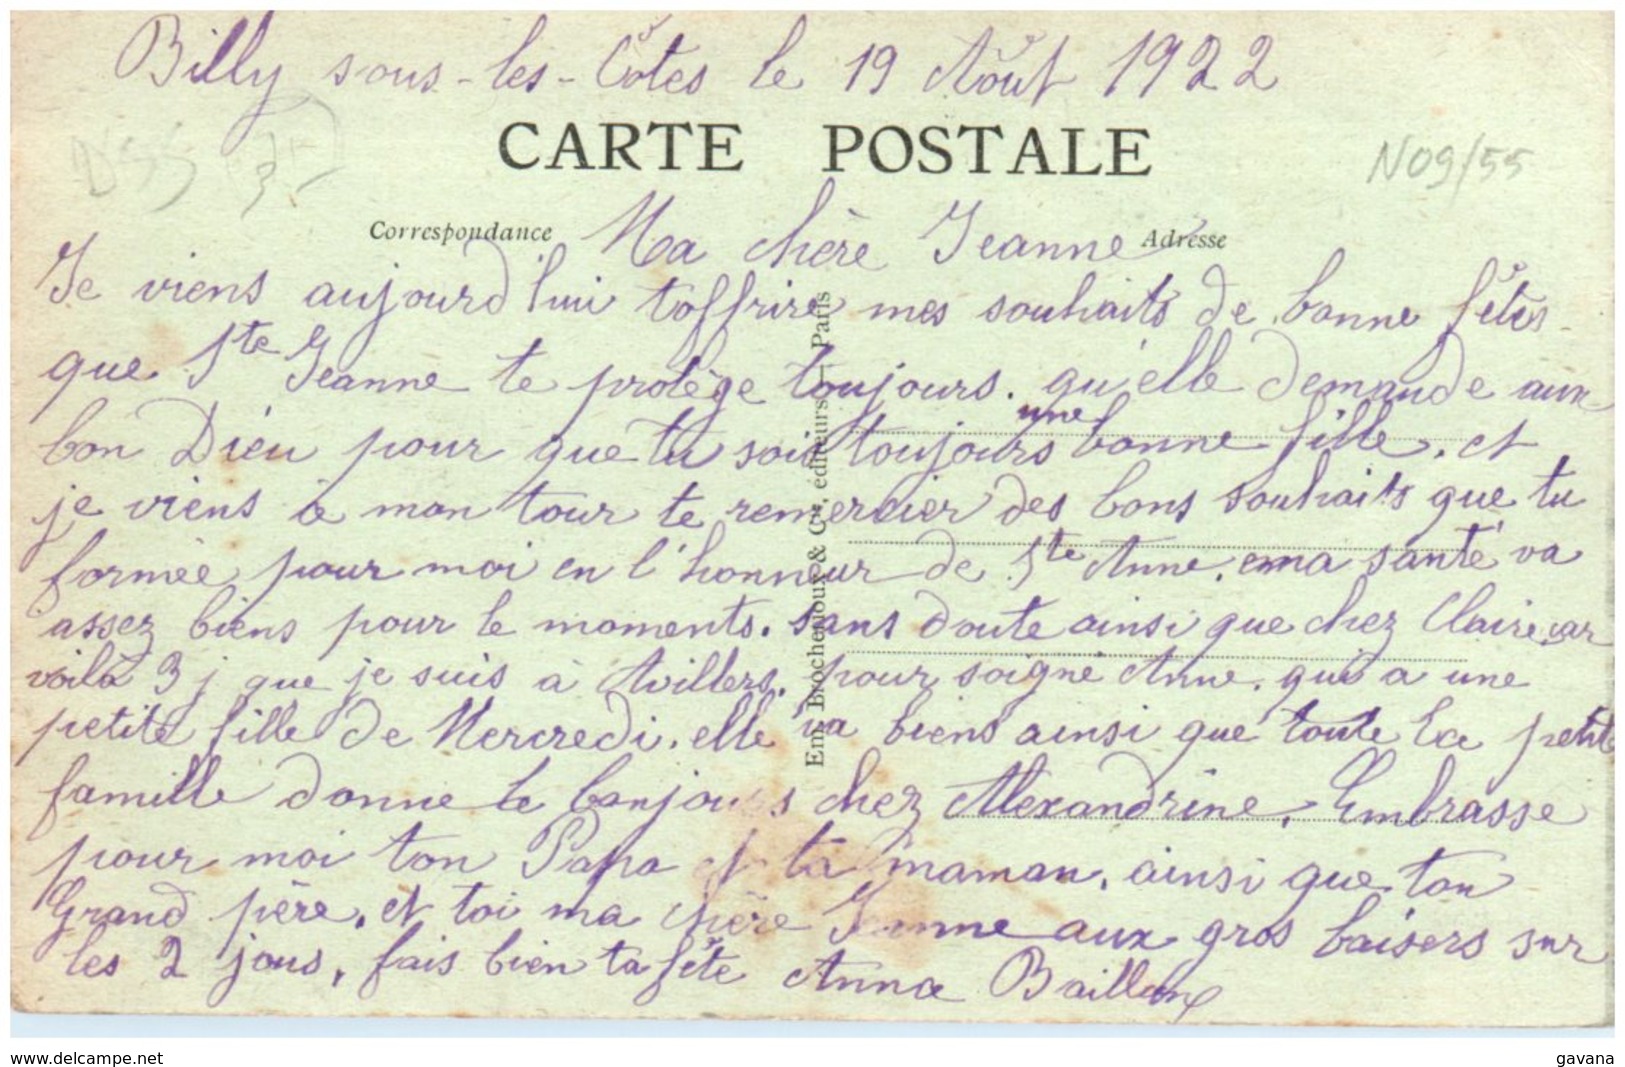 Billy sous-les-Côtes le 19 Août 1922
CARTE POSTALE
N09/55
Correspondance
Ma chère Jeanne
Adresse
Je viens aujourd'hui t'offrire mes souhaits de bonne fêtes
que Ste Jeanne te protège toujours. qu'elle demande aux
bon Dieu pour que tu sois toujours une bonne fille. et
je viens à mon tour te remercier des bons souhaits que tu
formée pour moi en l'honneur de Ste Anne. ma santé va
assez biens pour le moments. sans doute ainsi que chez Claire. car
voilà 3 j que je suis à Avillers. pour soigné Anne. qui a une
petite fille de Mercredi. elle va biens ainsi que toute la petite
famille donne le bonjours chez Alexandrine. Embrasse
pour moi ton Papa et ta maman. ainsi que ton
Grand père. et toi ma chère Jeanne aux gros baisers sur
les 2 joues, fais bien ta fête Anna Baillon
Em. Brocherioux & Cie, éditeurs — Paris
www.delcampe.net
gavana